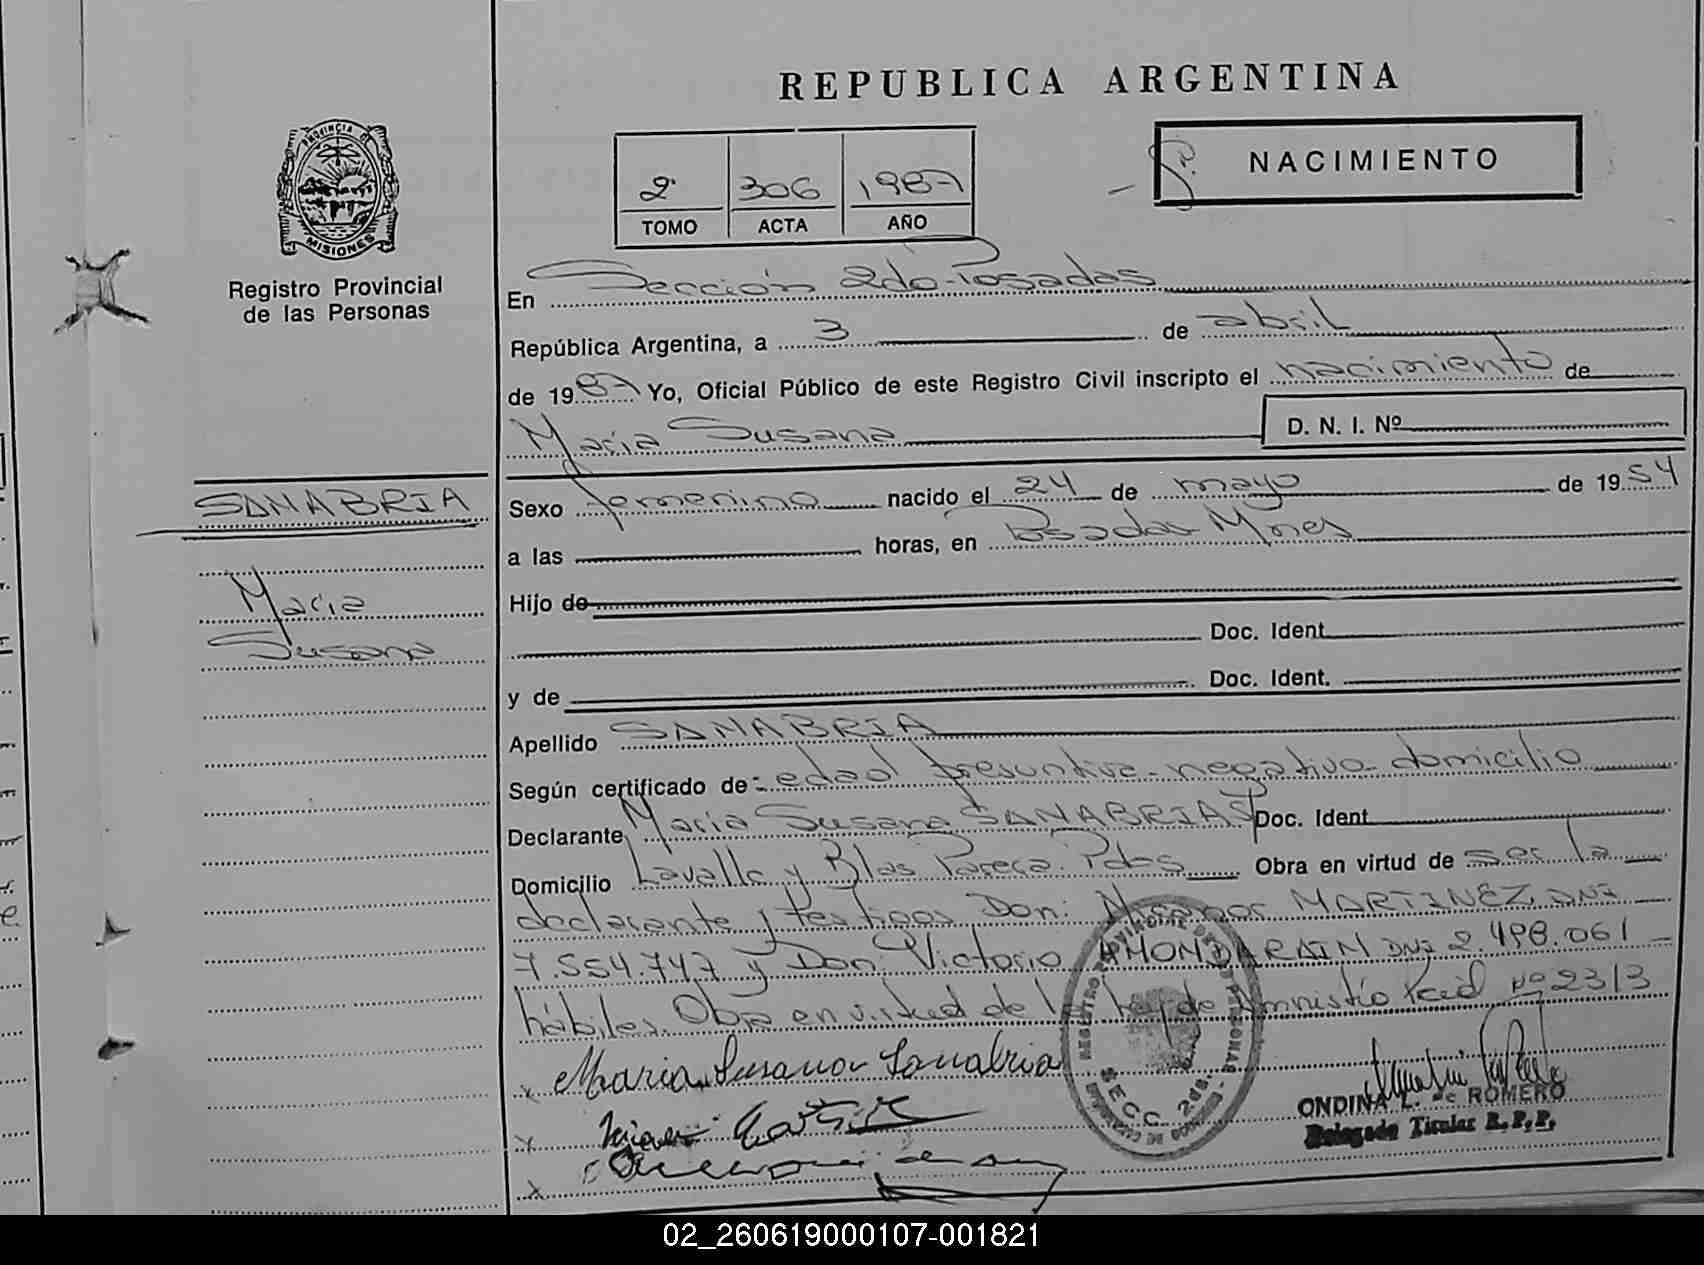 REPUBLICA ARGENTINA
PROVINCIA DE
MISIONES
Registro Provincial
de las Personas
2º 306 1987
TOMO ACTA AÑO
NACIMIENTO
En Sección 2do-Posadas
República Argentina, a 3 de abril
de 1987 Yo, Oficial Público de este Registro Civil inscripto el nacimiento de
Maria Susana D. N. I. Nº
SANABRIA
Maria
Susana
Sexo femenino nacido el 24 de mayo de 1954
a las horas, en Posadas Mnes
Hijo de
Doc. Ident.
y de Doc. Ident.
Apellido SANABRIA
Según certificado de edad presuntiva-negativa-domicilio
Declarante Maria Susana SANABRIA Doc. Ident.
Domicilio Lavalle y Blas Parera. Pdas Obra en virtud de ser la
declarante y testigos Don: Nicanor MARTINEZ DNI
7.554.747 y Don: Victorio AMONDARAIN DNI 2.498.061
hábiles. Obra en virtud de la ley de Amnistío Pcial Nº 2313
Maria Susana Sanabria
SECC. 2da.
ONDINA L. de ROMERO
Delegada Titular R.P.P.
02_260619000107-001821